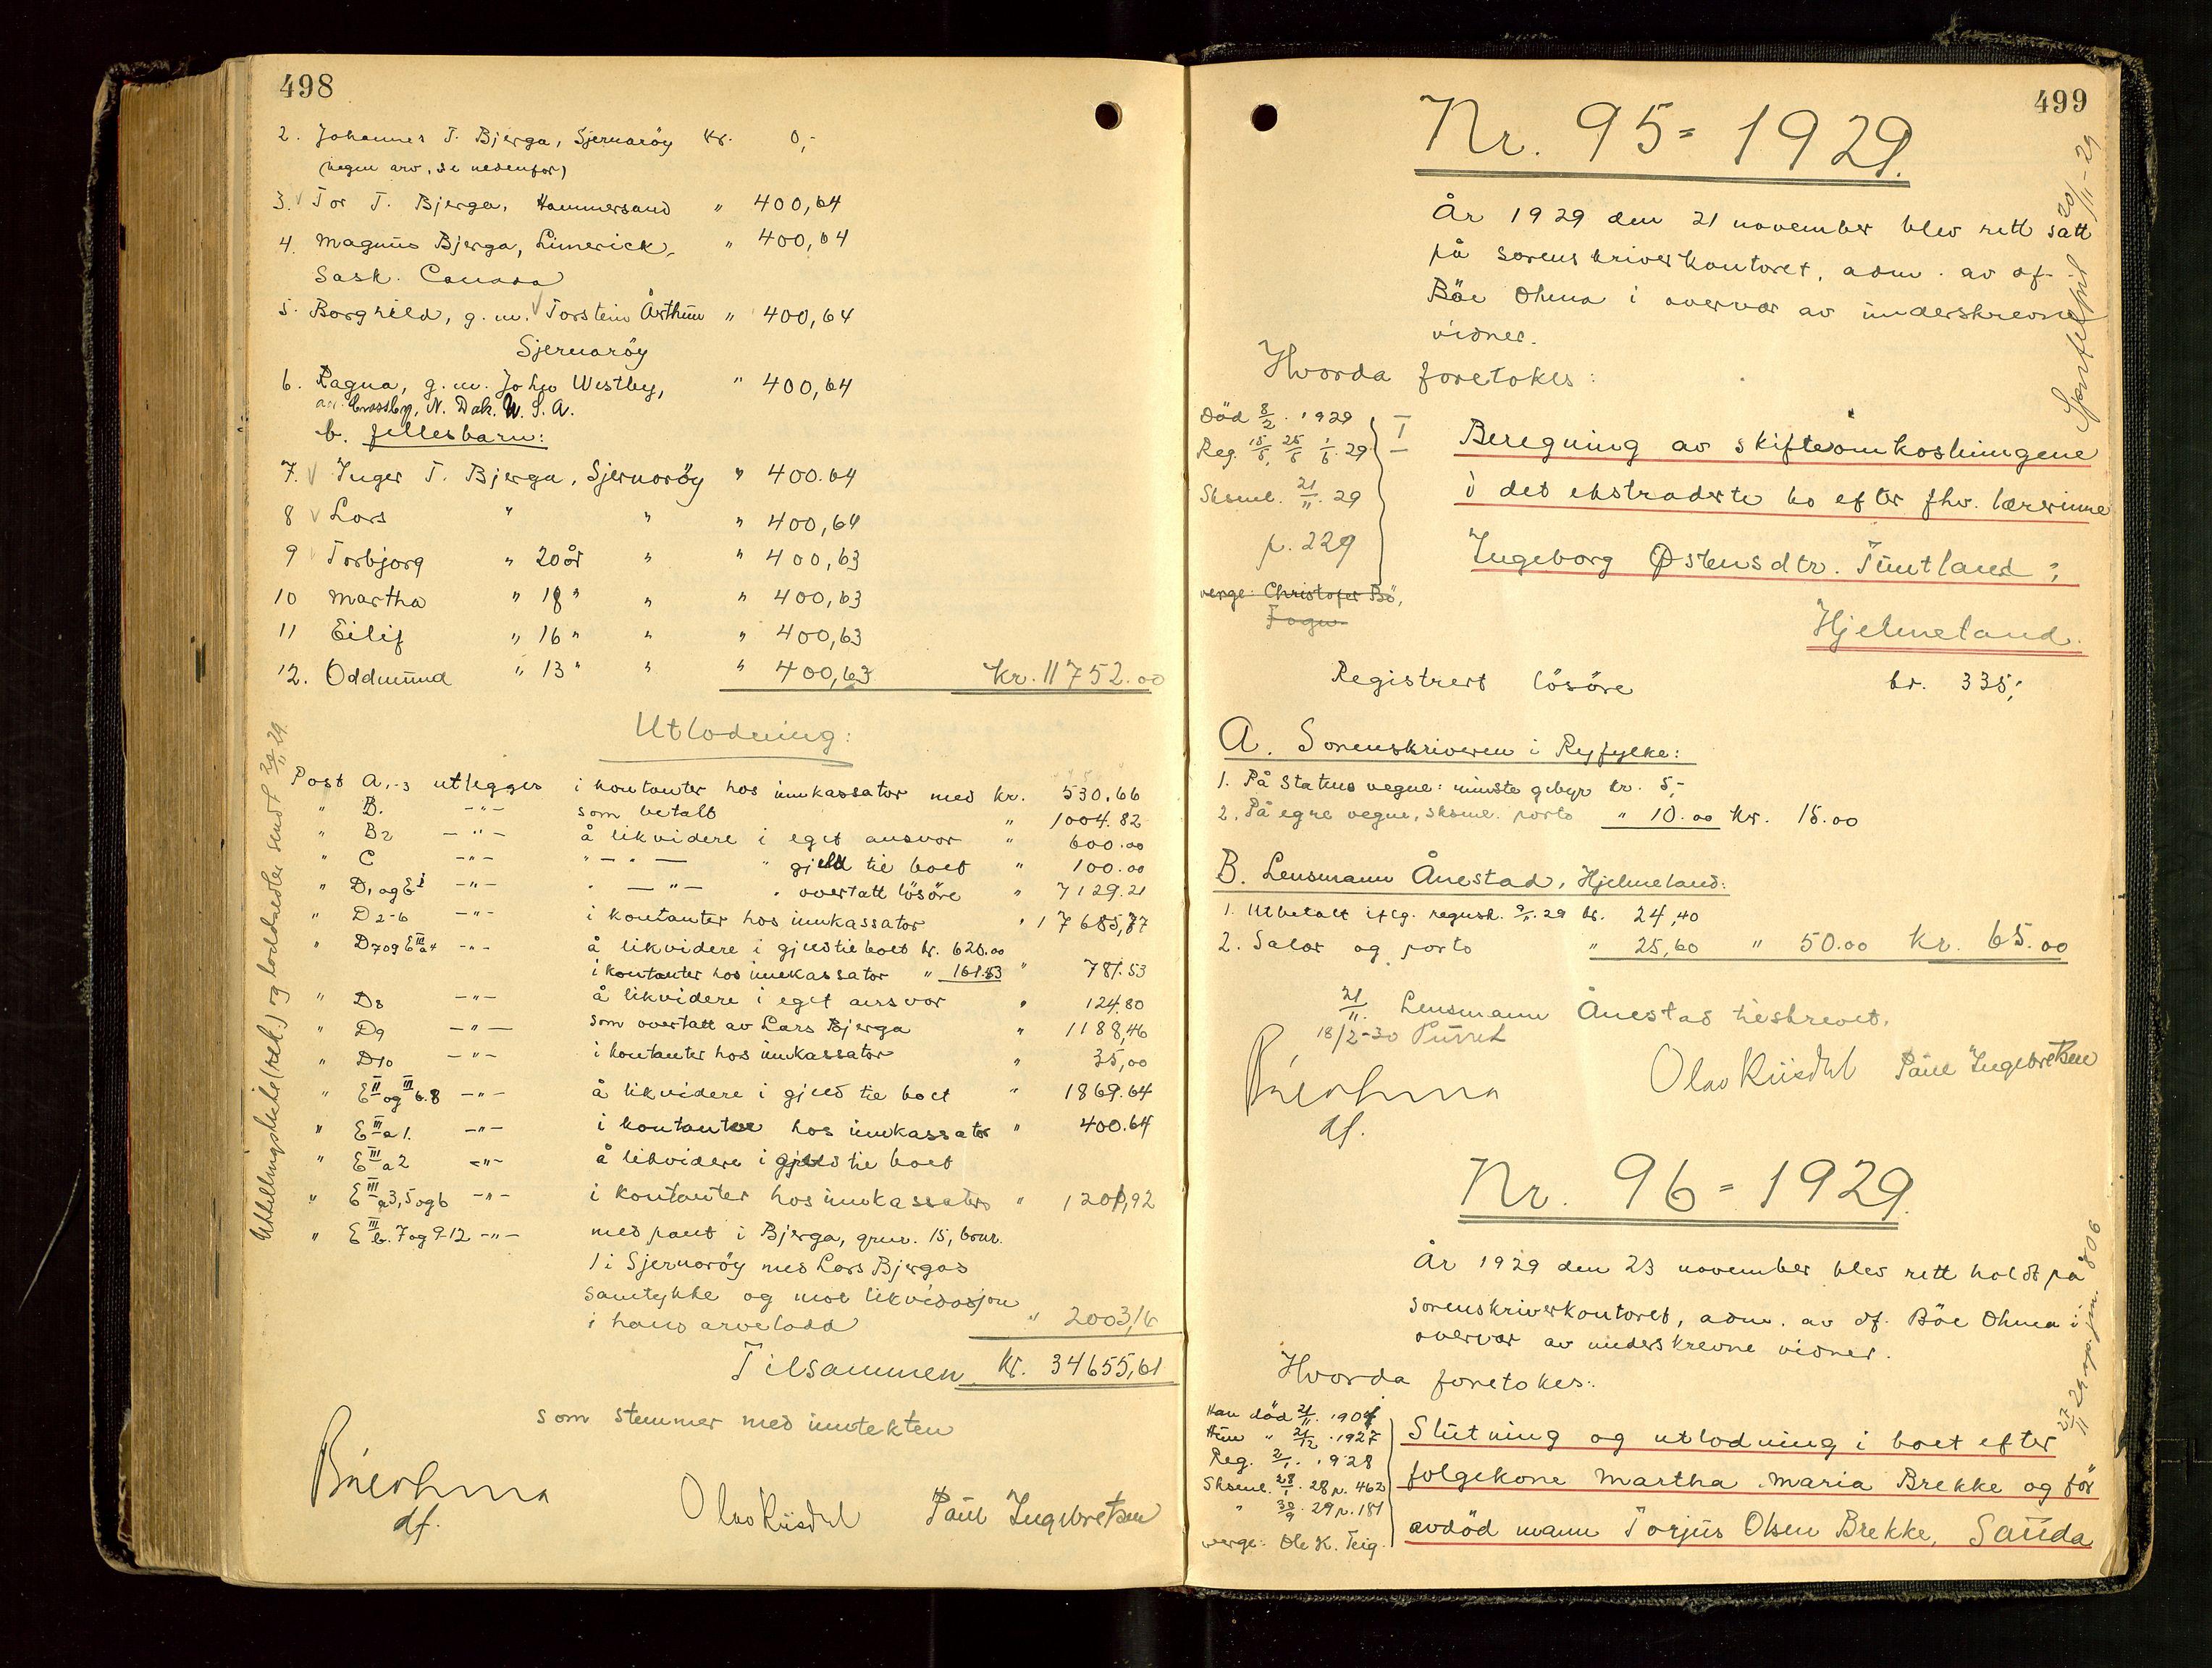 498
2. Johannes T. Bjerga, Sjernaröy kr. 0,-
(ingen arv, se nedenfor)
3. Tor T. Bjerga, Hammersand " 400,64
4. Magnus Bjerga, Limerick, " 400,64
Sask. Canada
5. Borghild, g.m. Torstein Årthun " 400,64
Sjernaröy
6. Ragna, g.m. John Westby, " 400,64
Crossby, N. Dak. U.S.A.
b. fellesbarn:
7. Inger T. Bjerga, Sjernaröy " 400.64
8 Lars " " " 400,64
9 Torbjorg " 20 år " " 400,63
10 Martha " 18 " " " 400,63
11 Eilif " 16 " " " 400,63
12. Oddmund " 13 " " " 400,63 Kr. 11752.00
Utlodning:
Post A1-3 utlegges i kontanter hos innkassator med kr. 530.66
" B. -"- som betalt " 1004.82
" B2 -"- å likvidere i eget ansvar " 600.00
" C -"- " - " - " gjeld til boet " 100.00
" D1 og E I -"- " - " - " overtatt lösöre " 7129.21
" D2-6 -"- i kontanter hos innkassator " 17685,87
" D7 og E III a4 -"- å likvidere i gjeld til boet kr. 620.00
i kontanter hos innkassator " 161.53 " 781.53
" D8 -"- å likvidere i eget ansvar " 124.80
" D9 -"- som overtatt av Lars Bjerga " 1188,46
" D10 -"- i kontanter hos innkassator " 35,00
" E II og III b.8 -"- å likvidere i gjeld til boet " 1869.64
" E III a1. -"- i kontanter hos innkassator " 400.64
" E III a2 -"- å likvidere i gjeld til boet
" E III a3,5 og 6 -"- i kontanter hos innkassator " 1201,92
" E III b. 7 og 9-12 -"- med pant i Bjerga, gnr. 15, bnr.
1 i Sjernaröy med Lars Bjergas
samtykke og mot likvidasjon
i hans arvelodd " 2003,16
Tilsammen kr. 34655,61
som stemmer med inntekten
Böe Ohma
df.
Olav Riisdal Paul Ingebretsen
499
Nr. 95 = 1929.
År 1929 den 21 november blev rett satt
på sorenskriverkontoret, adm. av df.
Böe Ohma i overvær av underskrevne
vidner.
Hvorda foretokes:
Död 8/2. 1929
Reg. 15/5, 25/5 1/6.29
Sksml. 21/11.29
p. 229
verge: Christofer Bö,
Fogn.
I
Beregning av skifteomkostningene
i det ekstraderte bo efter fhv. lærerinne
Ingeborg Østensdtr. Tuntland,
Hjelmeland.
Registrert lösöre kr. 335,-
A. Sorenskriveren i Ryfylke:
1. På Statens vegne: minste gebyr kr. 5,-
2. På egne vegne, sksml. porto " 10.00 kr. 15.00
B. Lensmann Ånestad, Hjelmeland:
1. Utbetalt iflg. regnsk. kr. 24,40
2. Salær og porto " 25,60 " 50.00 kr. 65.00
21/11. Lensmann Ånestad tilskrevet.
18/2-30 Purret
Böe Ohma
df.
Olav Riisdal Paul Ingebretsen
Nr. 96 = 1929.
År 1929 den 23 november blev rett holdt på
sorenskriverkontoret, adm. av df. Böe Ohma i
overvær av underskrevne vidner.
Hvorda foretokes:
Han död 21/11. 1904
Hun " 21/12. 1927
Reg. 2/1. 1928
Sksml. 28/1. 28 p. 462
" 30/9. 29 p. 181
verge: Ole K. Teig.
Slutning og utlodning i boet efter
folgekone Martha Maria Brekke og för
avdöd mann Torjus Olsen Brekke, Sauda